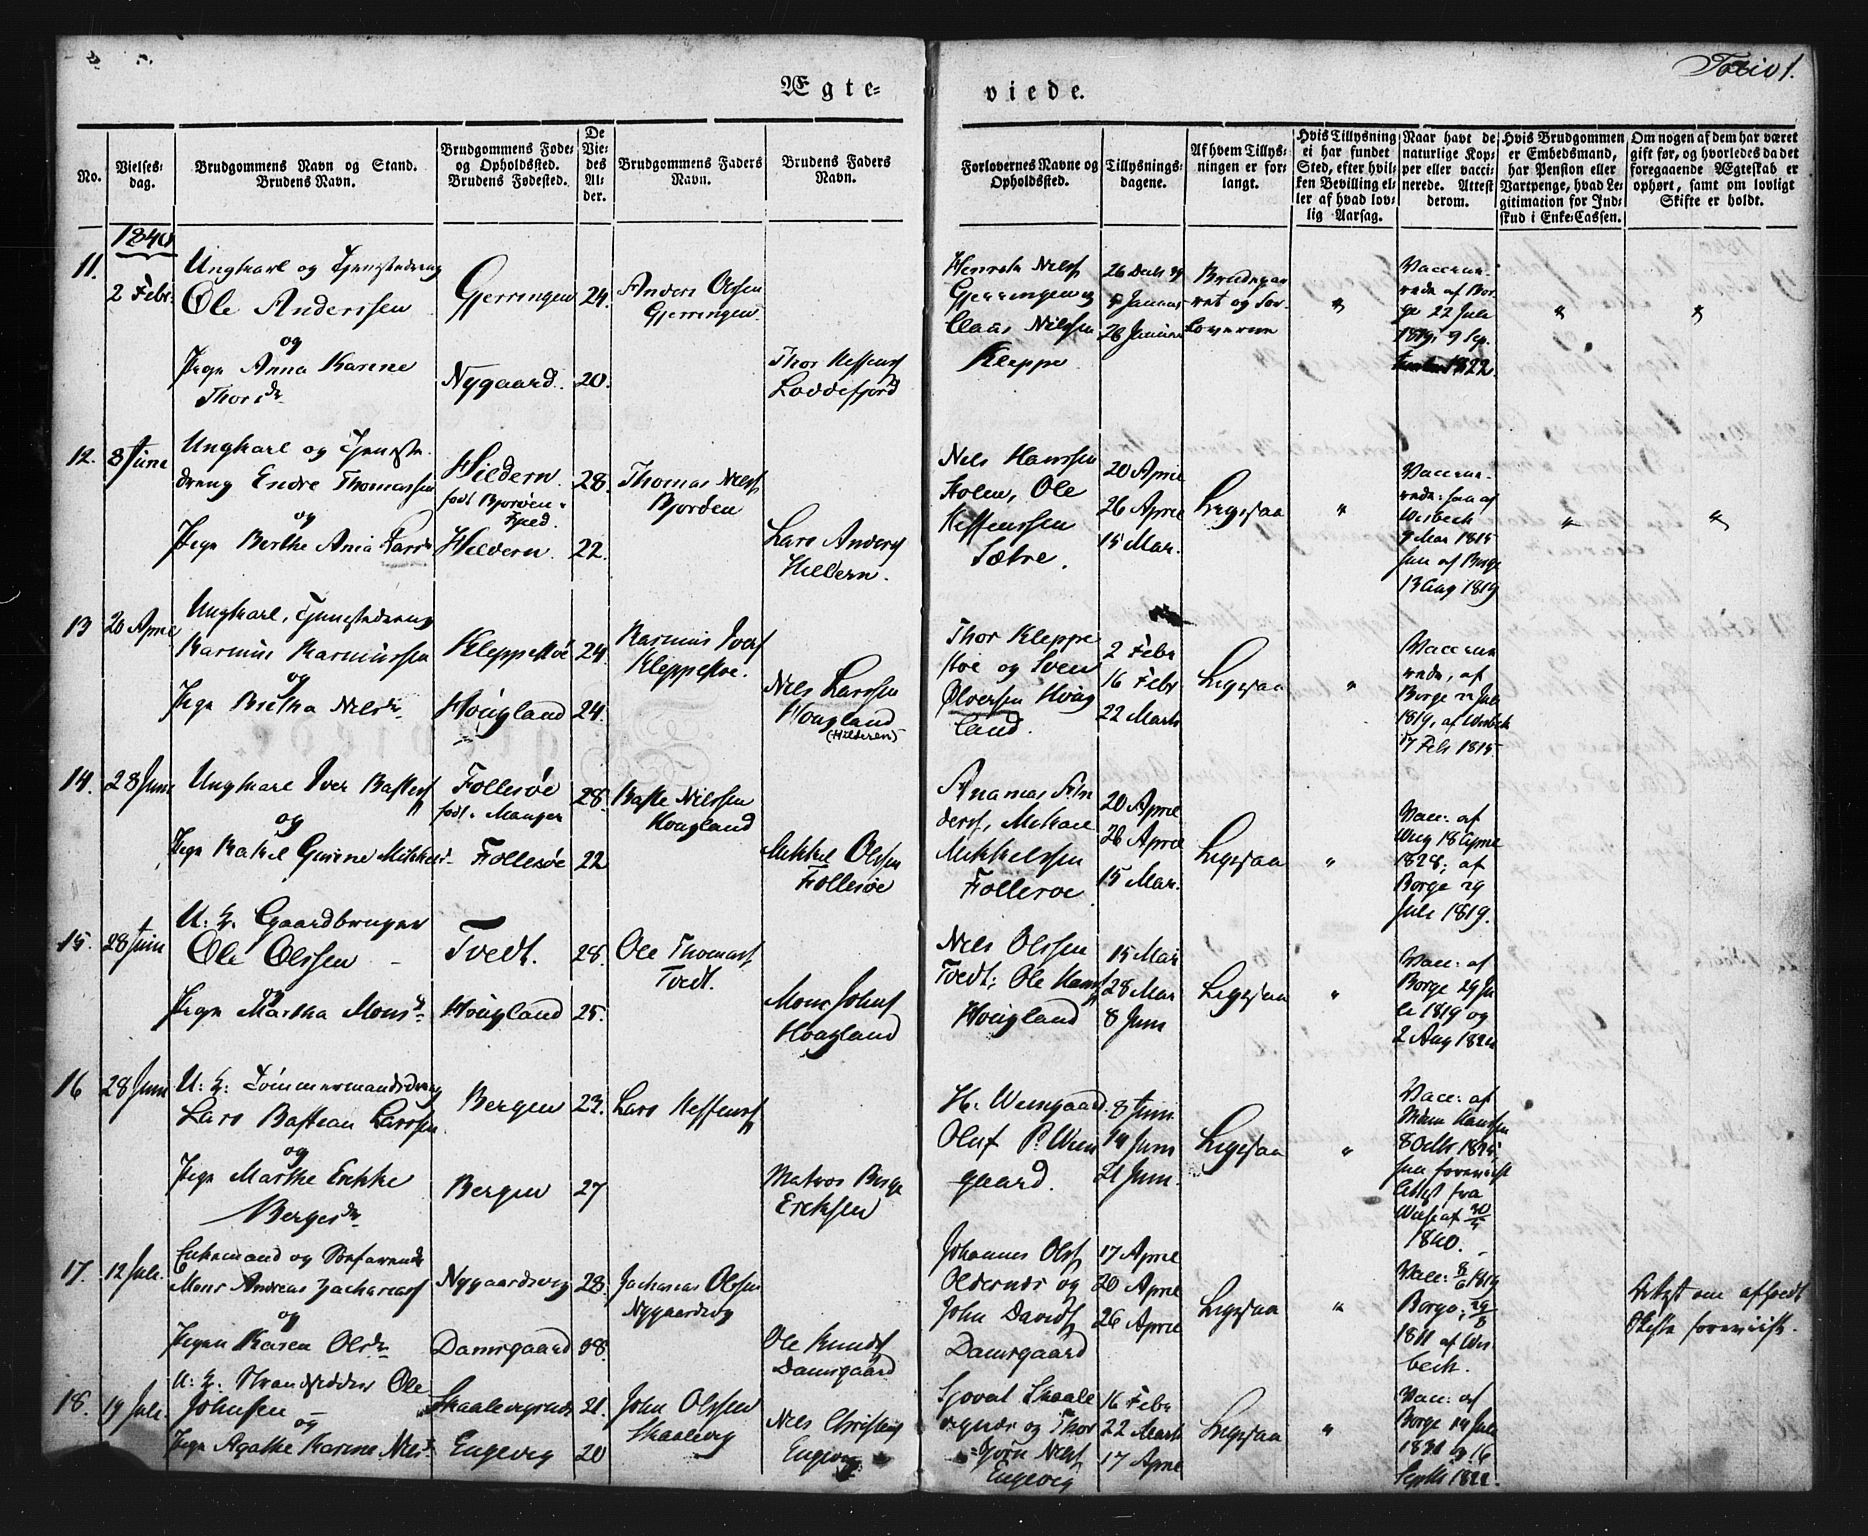 Folio 1.
Ægte= viede.
No.
Vielses=
dag.
Brudgommens Navn og Stand.
Brudens Navn.
Brudgommens Føde=
og Opholdssted.
Brudens Fødested.
De
Vie=
des
Al=
der.
Brudgommens Faders
Navn.
Brudens Faders
Navn.
Forlovernes Navne og
Opholdssted.
Tillysnings=
dagene.
Af hvem Tillys=
ningen er for=
langt.
Hvis Tillysning
ei har fundet
Sted, efter hvil=
ken Bevilling el=
ler af hvad lov=
lig Aarsag.
Naar havt de
naturlige Kop=
per eller vacci=
nerede. Attest
derom.
Hvis Brudgommen
er Embedsmand,
har Pension eller
Vartpenge, hvad Le=
gitimation for Ind=
skud i Enke=Cassen.
Om nogen af dem har været
gift før, og hvorledes da det
foregaaende Ægteskab er
ophørt, samt om lovligt
Skifte er holdt.
1840
11.
2 Febr.
Ungkarl og Tjenestedreng
Ole Anderssen
og
Pige Anna Karine
Thorsdr
Gjerringen
Nygaard.
24.
20.
Anders Olssen
Gjerringen.
Thor
Loddefjord
Henrik Nilss
Gjerringen og
Claus Nilssen
Kleppe
26 Januar
Vaccine-
rede af Bor-
ge 22 Juli
1819, 9 Sep.
1822.
12.
8 Juni
Ungkarl og Tjeneste
dreng Endre Thomassen
og
Pige Berthe Ania Larsdr
Hildern
født Bjorøen
Hildern
28.
22.
Thomas Nilss
Bjorøen
Lars Anderss
Hildern.
Nels Hanssen
Holen, Ole
Steffenssen
Sætre.
20 April
26 April
15 Mai.
Ligesaa
Vaccine-
rede: han af
Wisbech
9 Mai 1815
hun af Borge
13 Aug 1819
13
20 April
Ungkarl, Tjenestedreng
Rasmus Rasmussen
og
Pige Britha Nilsdr
Kleppestøe
Hougland
24
24.
Rasmus Iverss
Kleppestoe.
Nils Larssen
Hougland
(Hilderen)
Thor Kleppe
stoe og Sven
Ølversen Houg
land.
2 Febr
16 Febr
22 Marts
Ligesaa
Vaccine
rede, af
Borge 22 Juli
1819, af Wisbech
17 Feb 1815.
14.
28 Juni
Ungkarl Iver Bastess
og
Pige Rakel Gurine Mikkelsdr
Follesøe
født. Manger
Follesøe
28.
22
Baste Nilssen
Hougland
Mikkel Olssen
Follesøe
Ananias An
derss, Mikael
Mikkelssen
Follesoe.
20 April
26 April
15 Mai.
Ligesaa
Vacc: af
1828; af
Borge 29
Juli 1819.
15.
28 Juni
U. K. Gaardbruger
Ole Olssen
og
Pige Martha Monsdr
Tvedt.
Hougland
28.
25.
Ole Thomass
Tvedt.
Mons Johnss
Hougland
Nils Olssen
Tvedt; Ole Hanss
Hougland
15 Mai
28 Mai
8 Juni
Ligesaa
Vacc: af
Borge 29 Ju
li 1819 og
2 Aug 1820
16
28 Juni
U: K: Tømmermandsdreng
Lars Bastean Larssen
og
Pige Marthe Erikke
Bergesdr
Bergen
Bergen
23.
27
Lars Steffenss
Matros Berge
Eriksen
H. Wiengaard.
Oluf P. Wien
gaard.
8 Juni
14 Juni
21 Juni.
Ligesaa
Vacc: af
8 Octb 1825
hun foreviist
Attest fra
1840.
17.
12 Juli.
Enkemand og Søefarende
Mons Andreas Zachariass
og
Pigen Karen Olsdr
Nygaardsvig
Damsgaard
28.
38.
Zacharias Olssen
Nygaardsvig
Ole Knudss
Damsgaard
Johannes Olss
Oldernæs og
John Davidss
Damsgaard
17 April
20 April
26 April
Ligesaa
Vacc: 8/6 1819
Borge, 29/8
1811 af Wis-
bech.
Attest om afholdt
Skifte foreviist.
18.
19 Juli.
U. K. Strandsidder Ole
Johnsen
og
Pige Agathe Karine Nilsdr
Skaalevignæs
Engevig
21.
20
John Olssen
Skaalevig
Nils Christens
Engevig
Sjovat Skaale
vignæs og Thor
Jørn Nilss
Engevig
16 Febr
22 Marts
17 April
Ligesaa
Vacc: af
Borge 14 Juli
1831 og 16
Septb 1822.